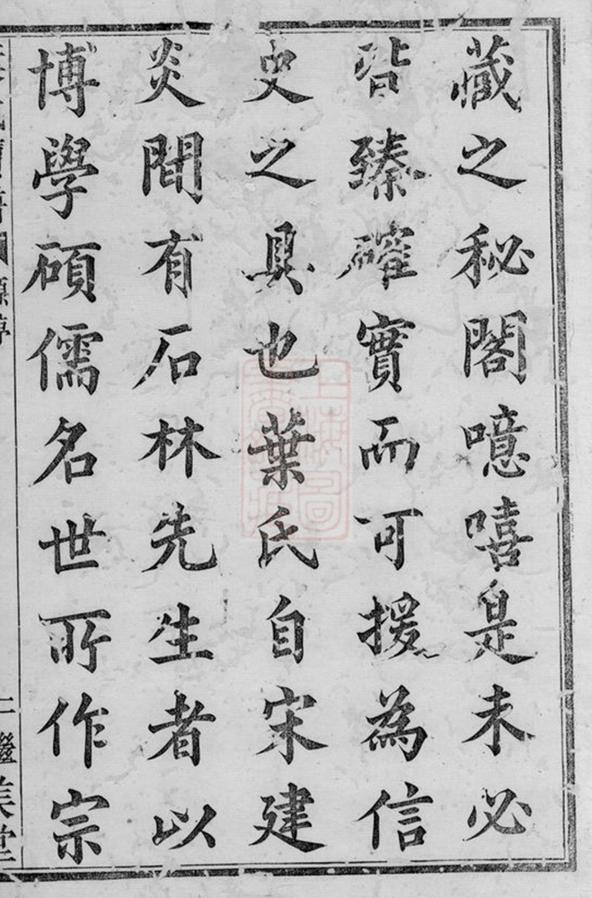 藏之秘閣噫嘻是未必
皆臻確實而可援為信
史之具也葉氏自宋建
炎間有石林先生者以
博學碩儒名世所作宗
繼美堂